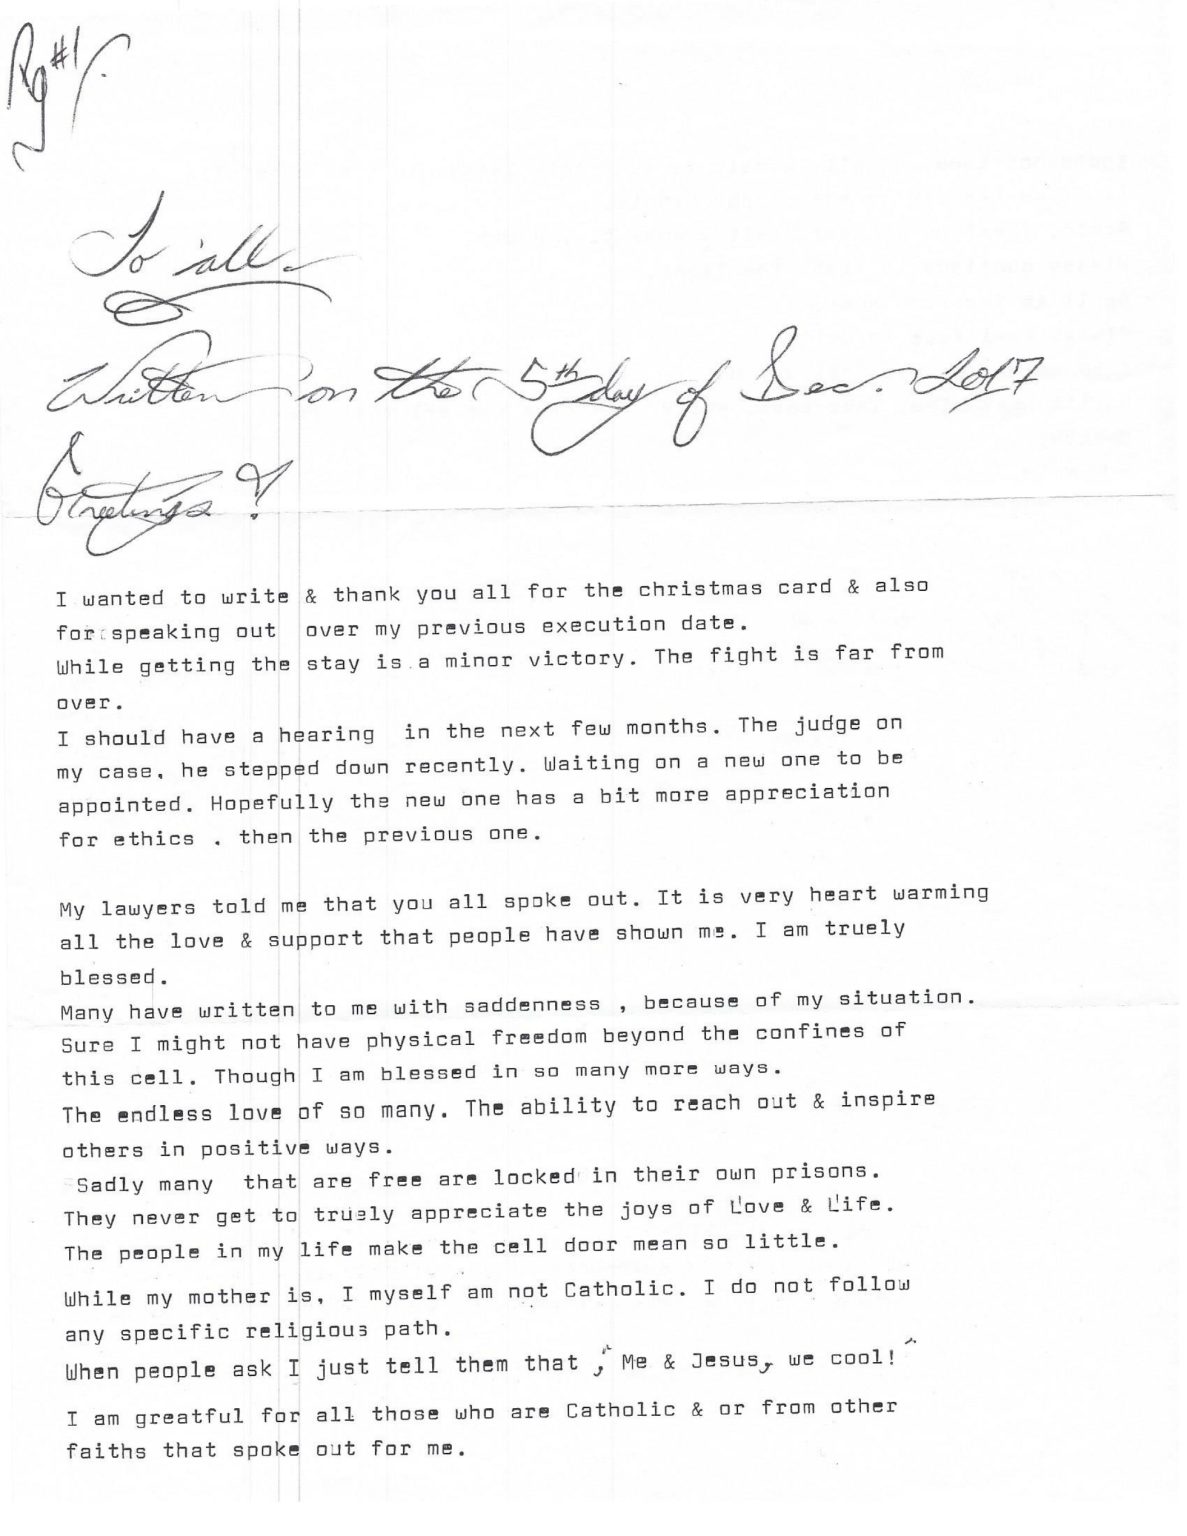 Pg #1.
To all
Written on the 5th day of Dec. 2017
Greetings!
I wanted to write & thank you all for the christmas card & also
for speaking out over my previous execution date.
While getting the stay is a minor victory. The fight is far from
over.
I should have a hearing in the next few months. The judge on
my case, he stepped down recently. Waiting on a new one to be
appointed. Hopefully the new one has a bit more appreciation
for ethics . then the previous one.
My lawyers told me that you all spoke out. It is very heart warming
all the love & support that people have shown me. I am truely
blessed.
Many have written to me with saddenness , because of my situation.
Sure I might not have physical freedom beyond the confines of
this cell. Though I am blessed in so many more ways.
The endless love of so many. The ability to reach out & inspire
others in positive ways.
Sadly many that are free are locked in their own prisons.
They never get to truely appreciate the joys of Love & Life.
The people in my life make the cell door mean so little.
While my mother is, I myself am not Catholic. I do not follow
any specific religious path.
When people ask I just tell them that , " Me & Jesus, we cool! "
I am greatful for all those who are Catholic & or from other
faiths that spoke out for me.